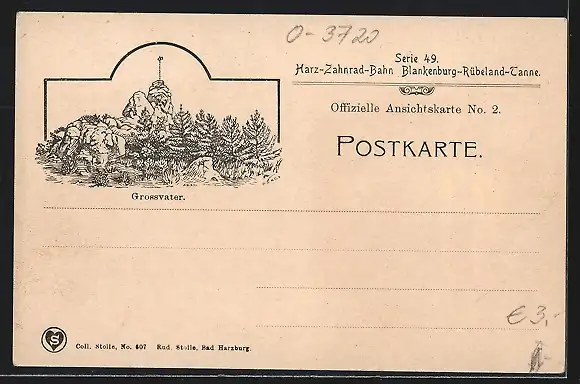 O-3720
Serie 49.
Harz-Zahnrad-Bahn Blankenburg-Rübeland-Tanne.
Offizielle Ansichtskarte No. 2.
POSTKARTE.
Grossvater.
€ 3,-
S
Coll. Stolle, No. 607 Rud. Stolle, Bad Harzburg.